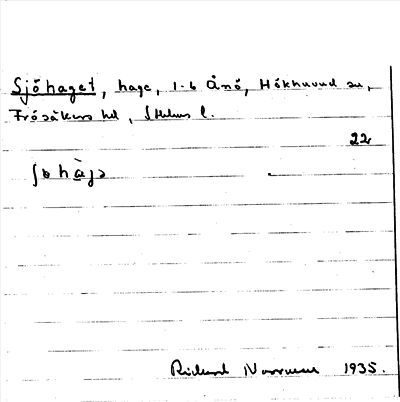 Sjöhaget, hage, 1-6 Ånö, Hökhuvud sn,
Frösåkers hd, Sthlms l.
22
ʃöhàgə
Rickard Norrman 1935.